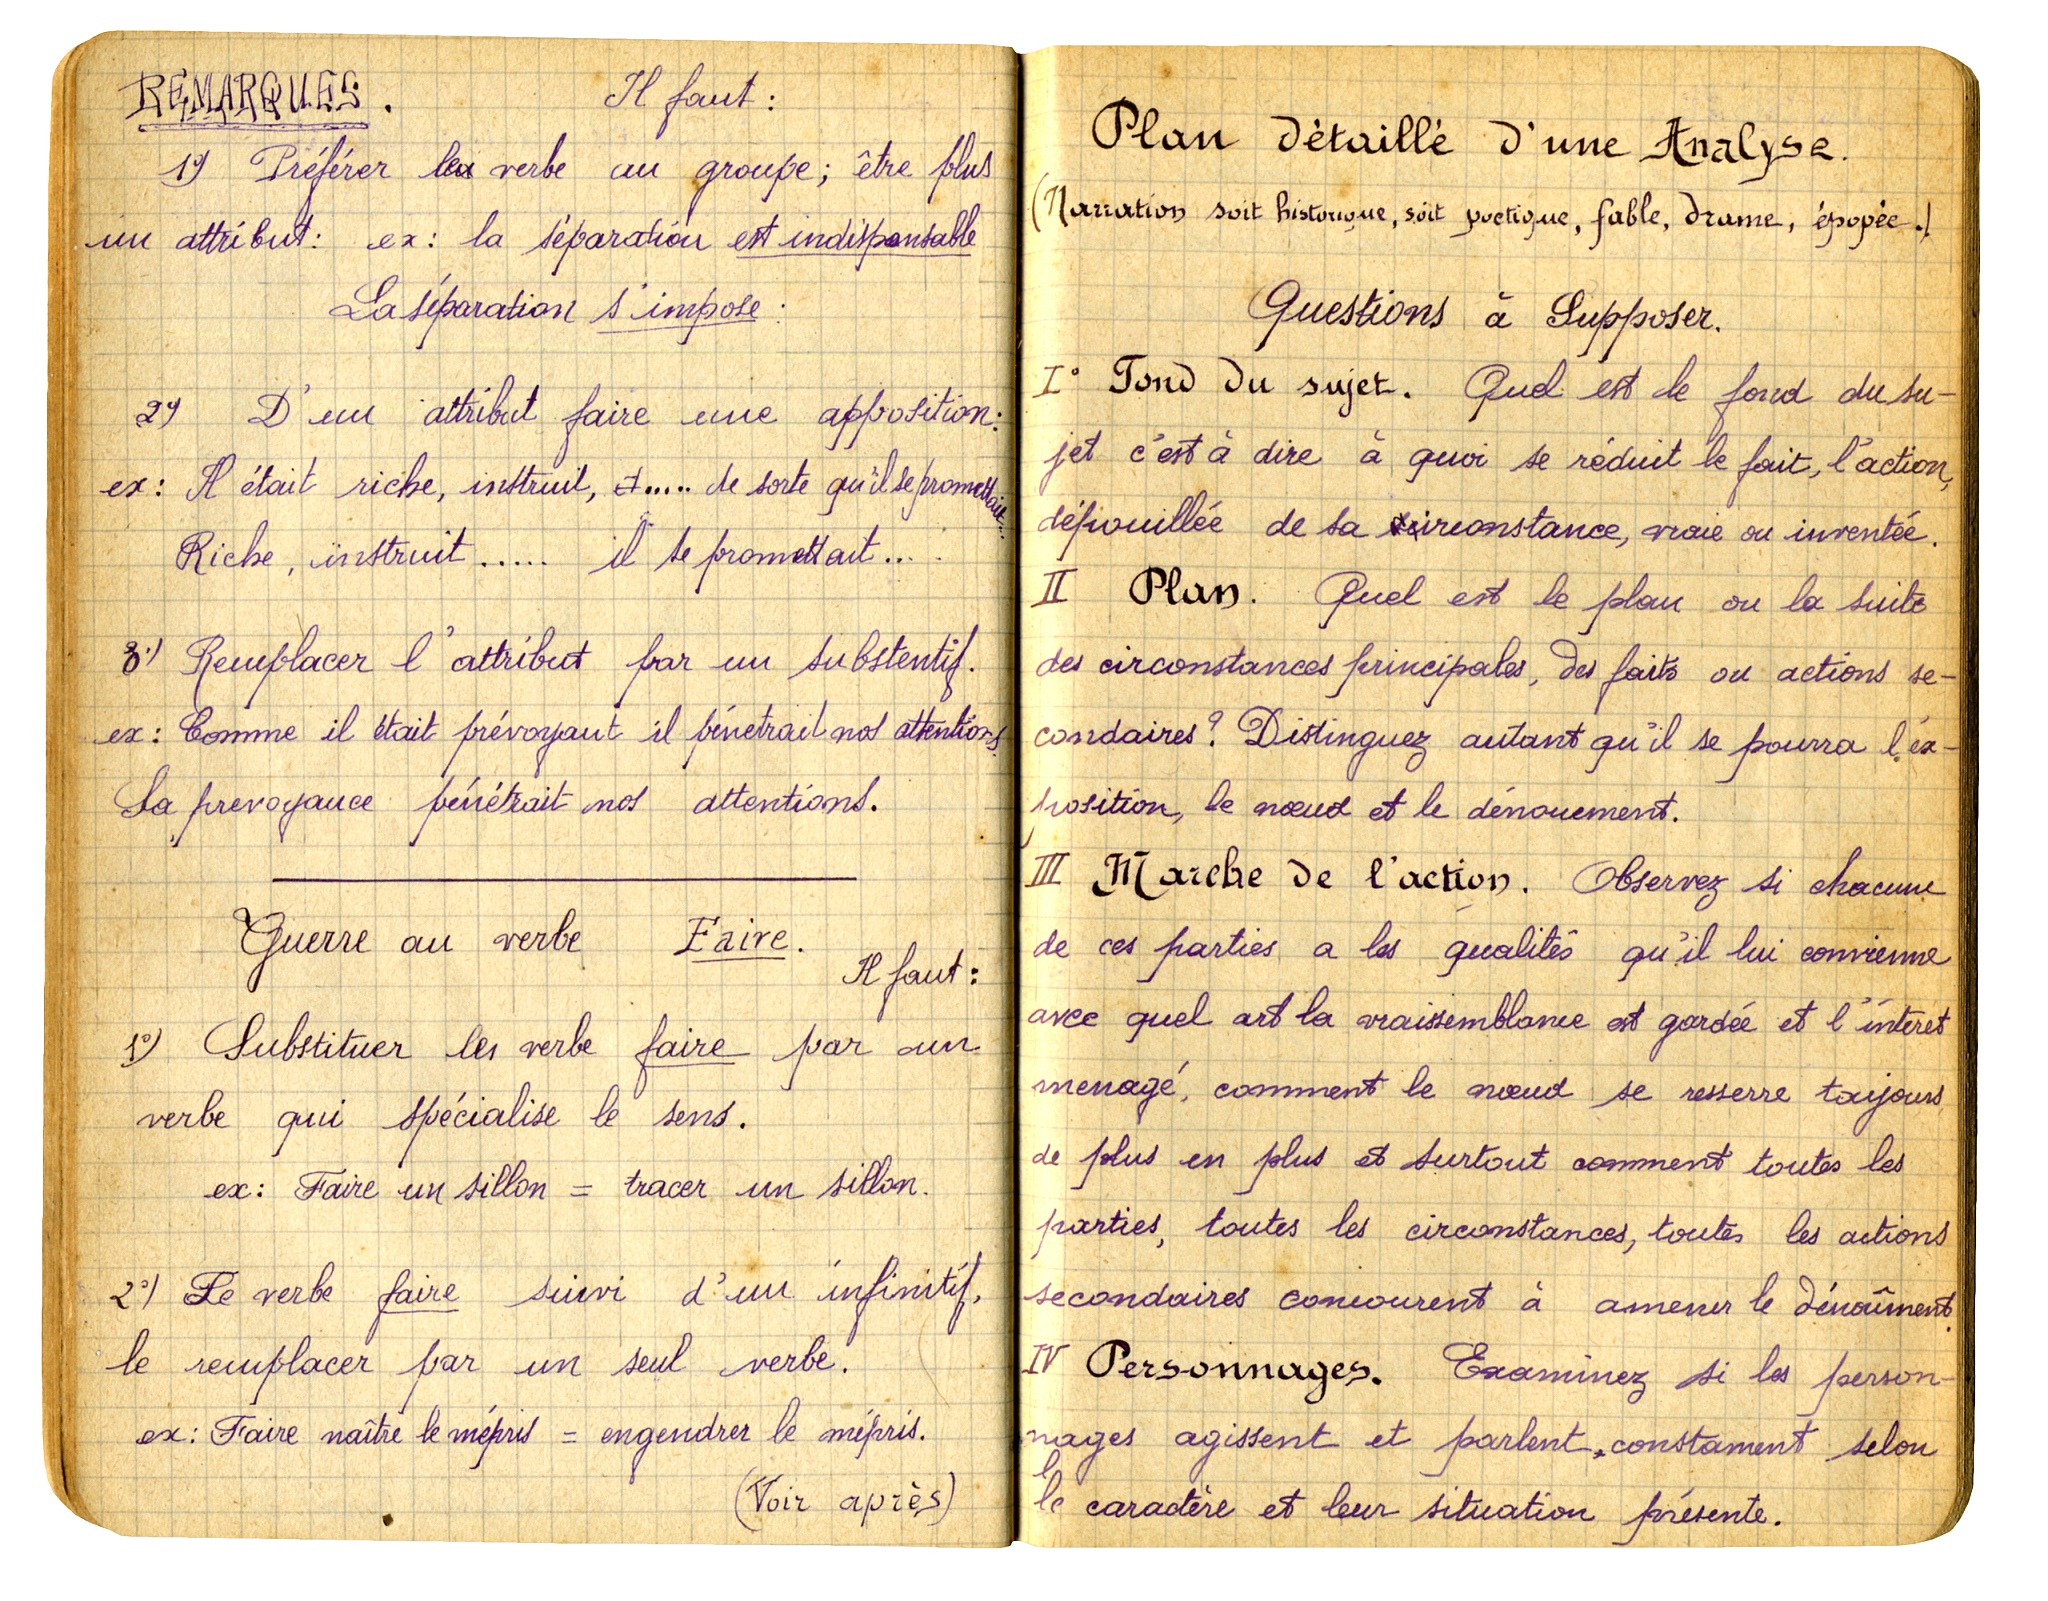 REMARQUES. Il faut:
1º) Préférer le verbe au groupe; être plus
un attribut: ex: la séparation est indispensable
La séparation s'impose.
2º) D'un attribut faire une apposition:
ex: Il était riche, instruit, et..... de sorte qu'il se promettait...
Riche, instruit..... il se promettait...
3º) Remplacer l'attribut par un substentif.
ex: Comme il était prévoyant il pénetrait nos attentions
La prevoyance pénétrait nos attentions.
Guerre au verbe Faire.
Il faut:
1º) Substituer les verbe faire par un
verbe qui spécialise le sens.
ex: Faire un sillon = tracer un sillon.
2º) Le verbe faire suivi d'un infinitif,
le remplacer par un seul verbe.
ex: Faire naître le mépris = engendrer le mépris.
(Voir après)
Plan détaillé d'une Analyse.
(Narration soit historique, soit poetique, fable, drame, épopée.)
Questions à Supposer.
I° Fond du sujet. Quel est le fond du su-
jet c'est à dire à quoi se réduit le fait, l'action,
dépouillée de sa circonstance, vraie ou inventée.
II Plan. Quel est le plan ou la suite
des circonstances principales, des faits ou actions se-
condaires? Distinguez autant qu'il se pourra l'éx-
position, le nœud et le dénouement.
III Marche de l'action. Observez si chacune
de ces parties a les qualités qu'il lui convienne
avec quel art la vraissemblance est gardée et l'intéret
menagé, comment le nœud se resserre toujours
de plus en plus et surtout comment toutes les
parties, toutes les circonstances, toutes les actions
secondaires concourent à amener le dénoûment.
IV Personnages. Examinez si les person-
nages agissent et parlent constament selon
le caractère et leur situation présente.